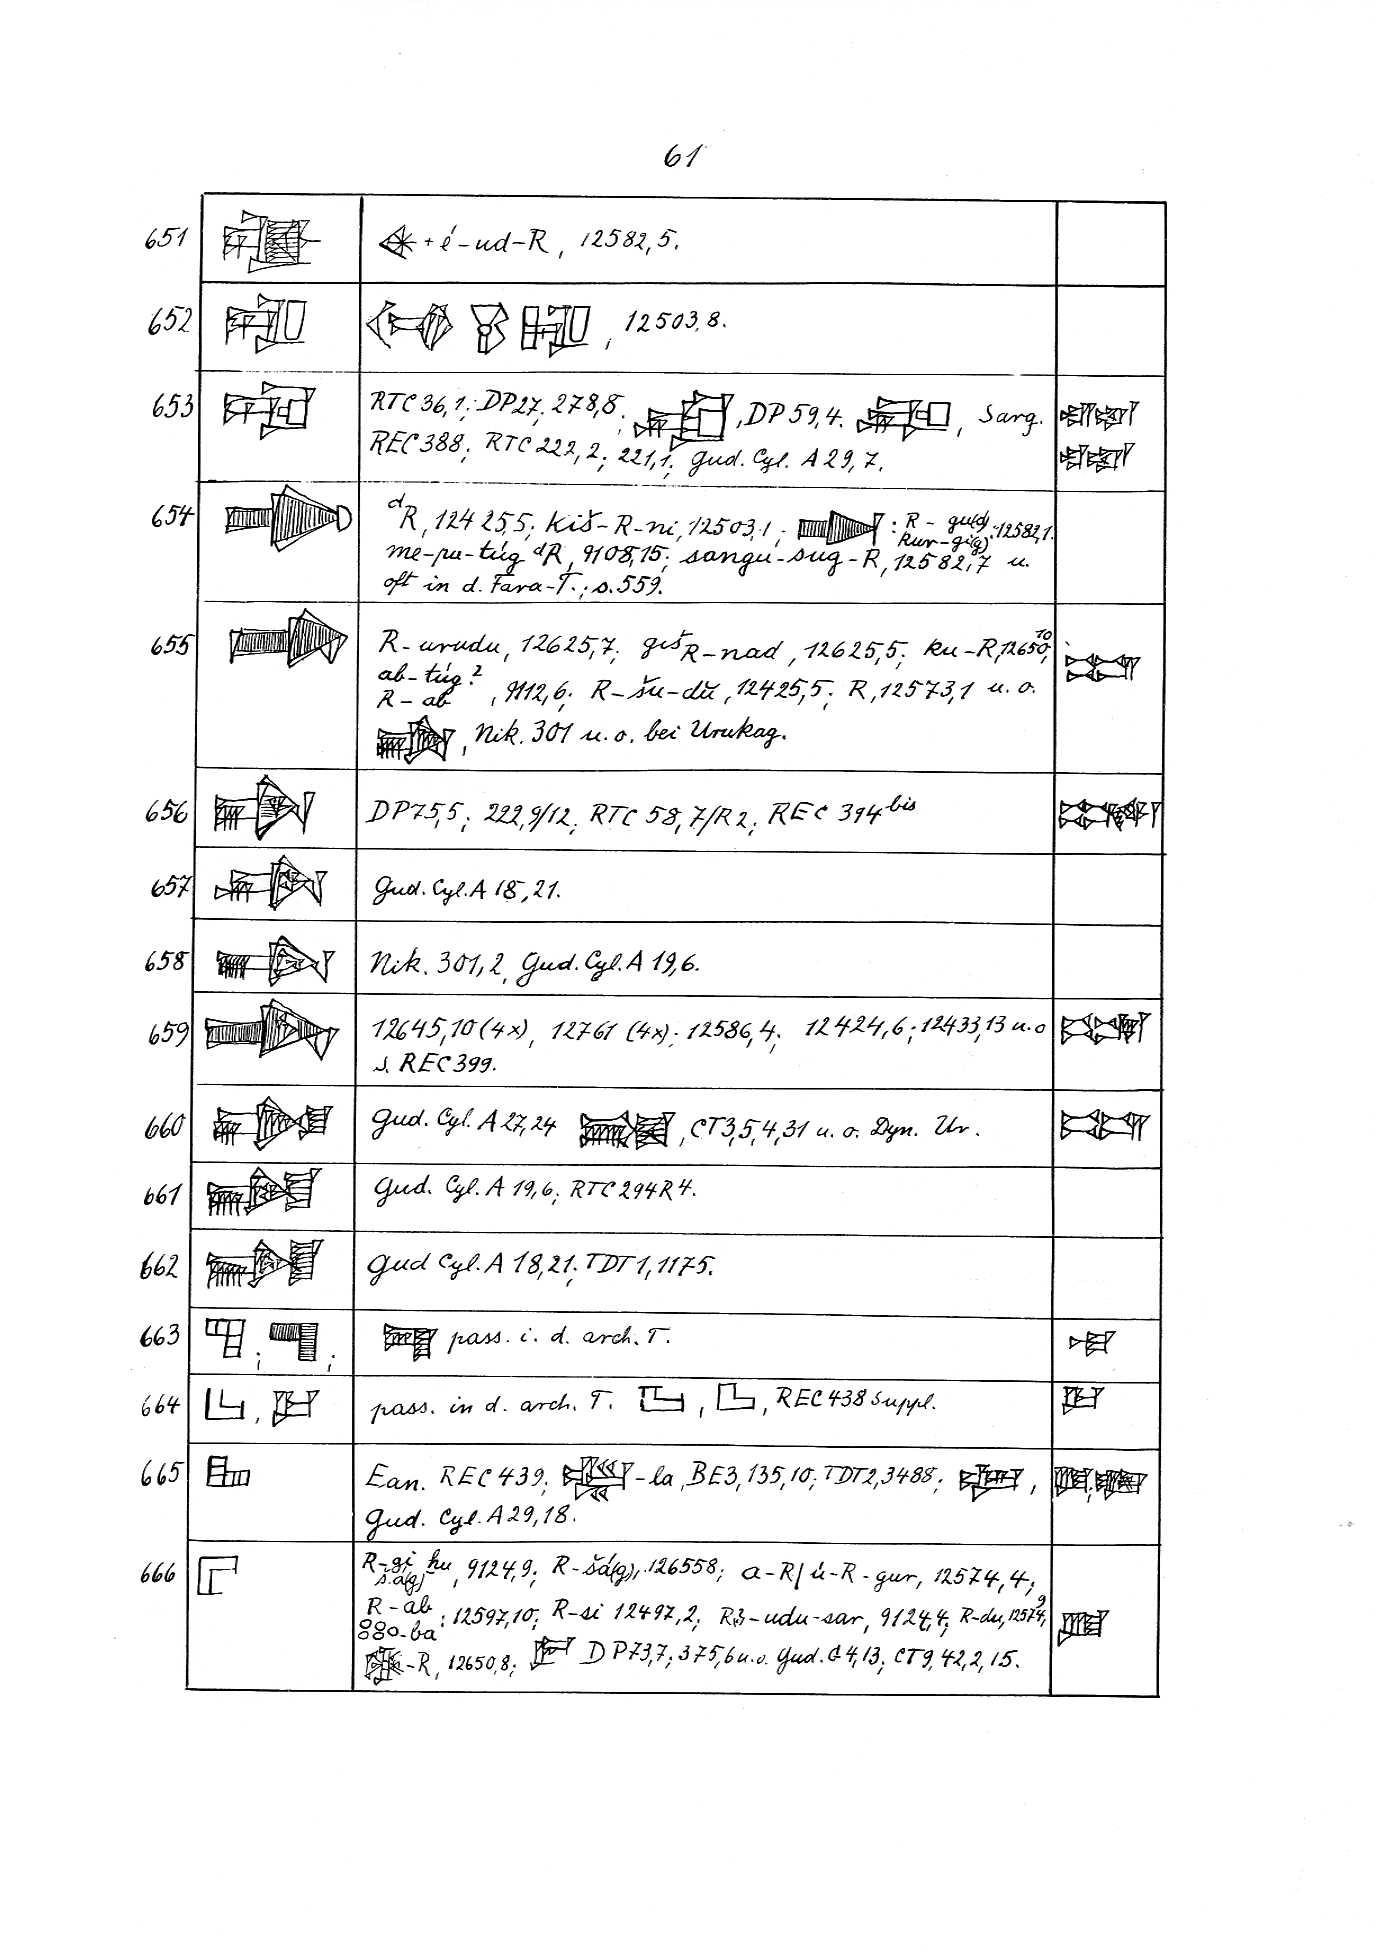 61
651 + é-ud-R, 12582,5.
652 , 12503,8.
653 RTC 36,1; DP27; 278,8; , DP 59,4. , Sarg.
REC 388; RTC 222,2; 221,1; Gud. Cyl. A 29,7.
654 ᵈR, 12425,5; Kiš-R-ni, 12503,1; : R-gu(d) Kur-gi(g) ; 12582,1.
me-pu-túg ᵈR, 9108,15; sangu-sug-R, 12582,7 u.
oft in d. Fara-T.; s. 559.
655 R-urudu, 12625,7; gišR-nad, 12625,5; ku-R, 12650,10;
ab-túg?
R-ab , 9112,6; R-šu-du, 12425,5; R, 12573,1 u. o.
, Nik. 301 u. o. bei Urukag.
656 DP75,5; 222,9/12; RTC 58,7/R2; REC 394bis
657 Gud. Cyl. A 18,21.
658 Nik. 301,2, Gud. Cyl. A 19,6.
659 12645,10 (4x), 12761 (4x); 12586,4; 12424,6; 12433,13 u. o
s. REC 399.
660 Gud. Cyl. A 27,24 , CT3,5,4,31 u. o. Dyn. Ur.
661 Gud. Cyl. A 19,6; RTC 294 R4.
662 Gud Cyl. A 18,21; TDT 1,1175.
663 ; ; pass. i. d. arch. T.
664 , pass. in d. arch. T. , , REC 438 Suppl.
665 Ean. REC 439; -la, BE3,135,10; TDT2,3488; ,
Gud. Cyl. A 29,18.
666 R-gi hu
šà(g) , 9124,9; R-šà(g), 126558; a-R/ú-R-gur, 12574,4;
R-ab
-ba : 12597,10; R-si 12497,2; R3-udu-sar, 9124,4; R-du, 12574,9
-R, 12650,8; DP73,7; 375,6 u. o. Gud. G 4,13; CT9,42,2,15.